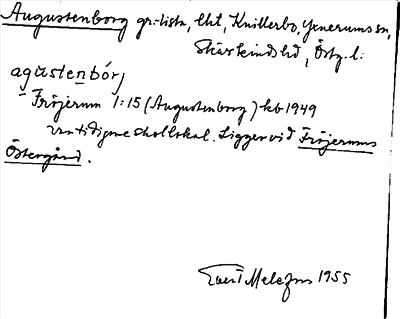 Augustenborg gr.-listn, lht, Knillerbo, Yxnerums sn,
Skärkinds hd, Östg. l:
agustenbórj
Fröjerum 1:15 (Augustenborg) kb 1949
skollokal. Ligger vid Fröjerums
Östergård.
1955